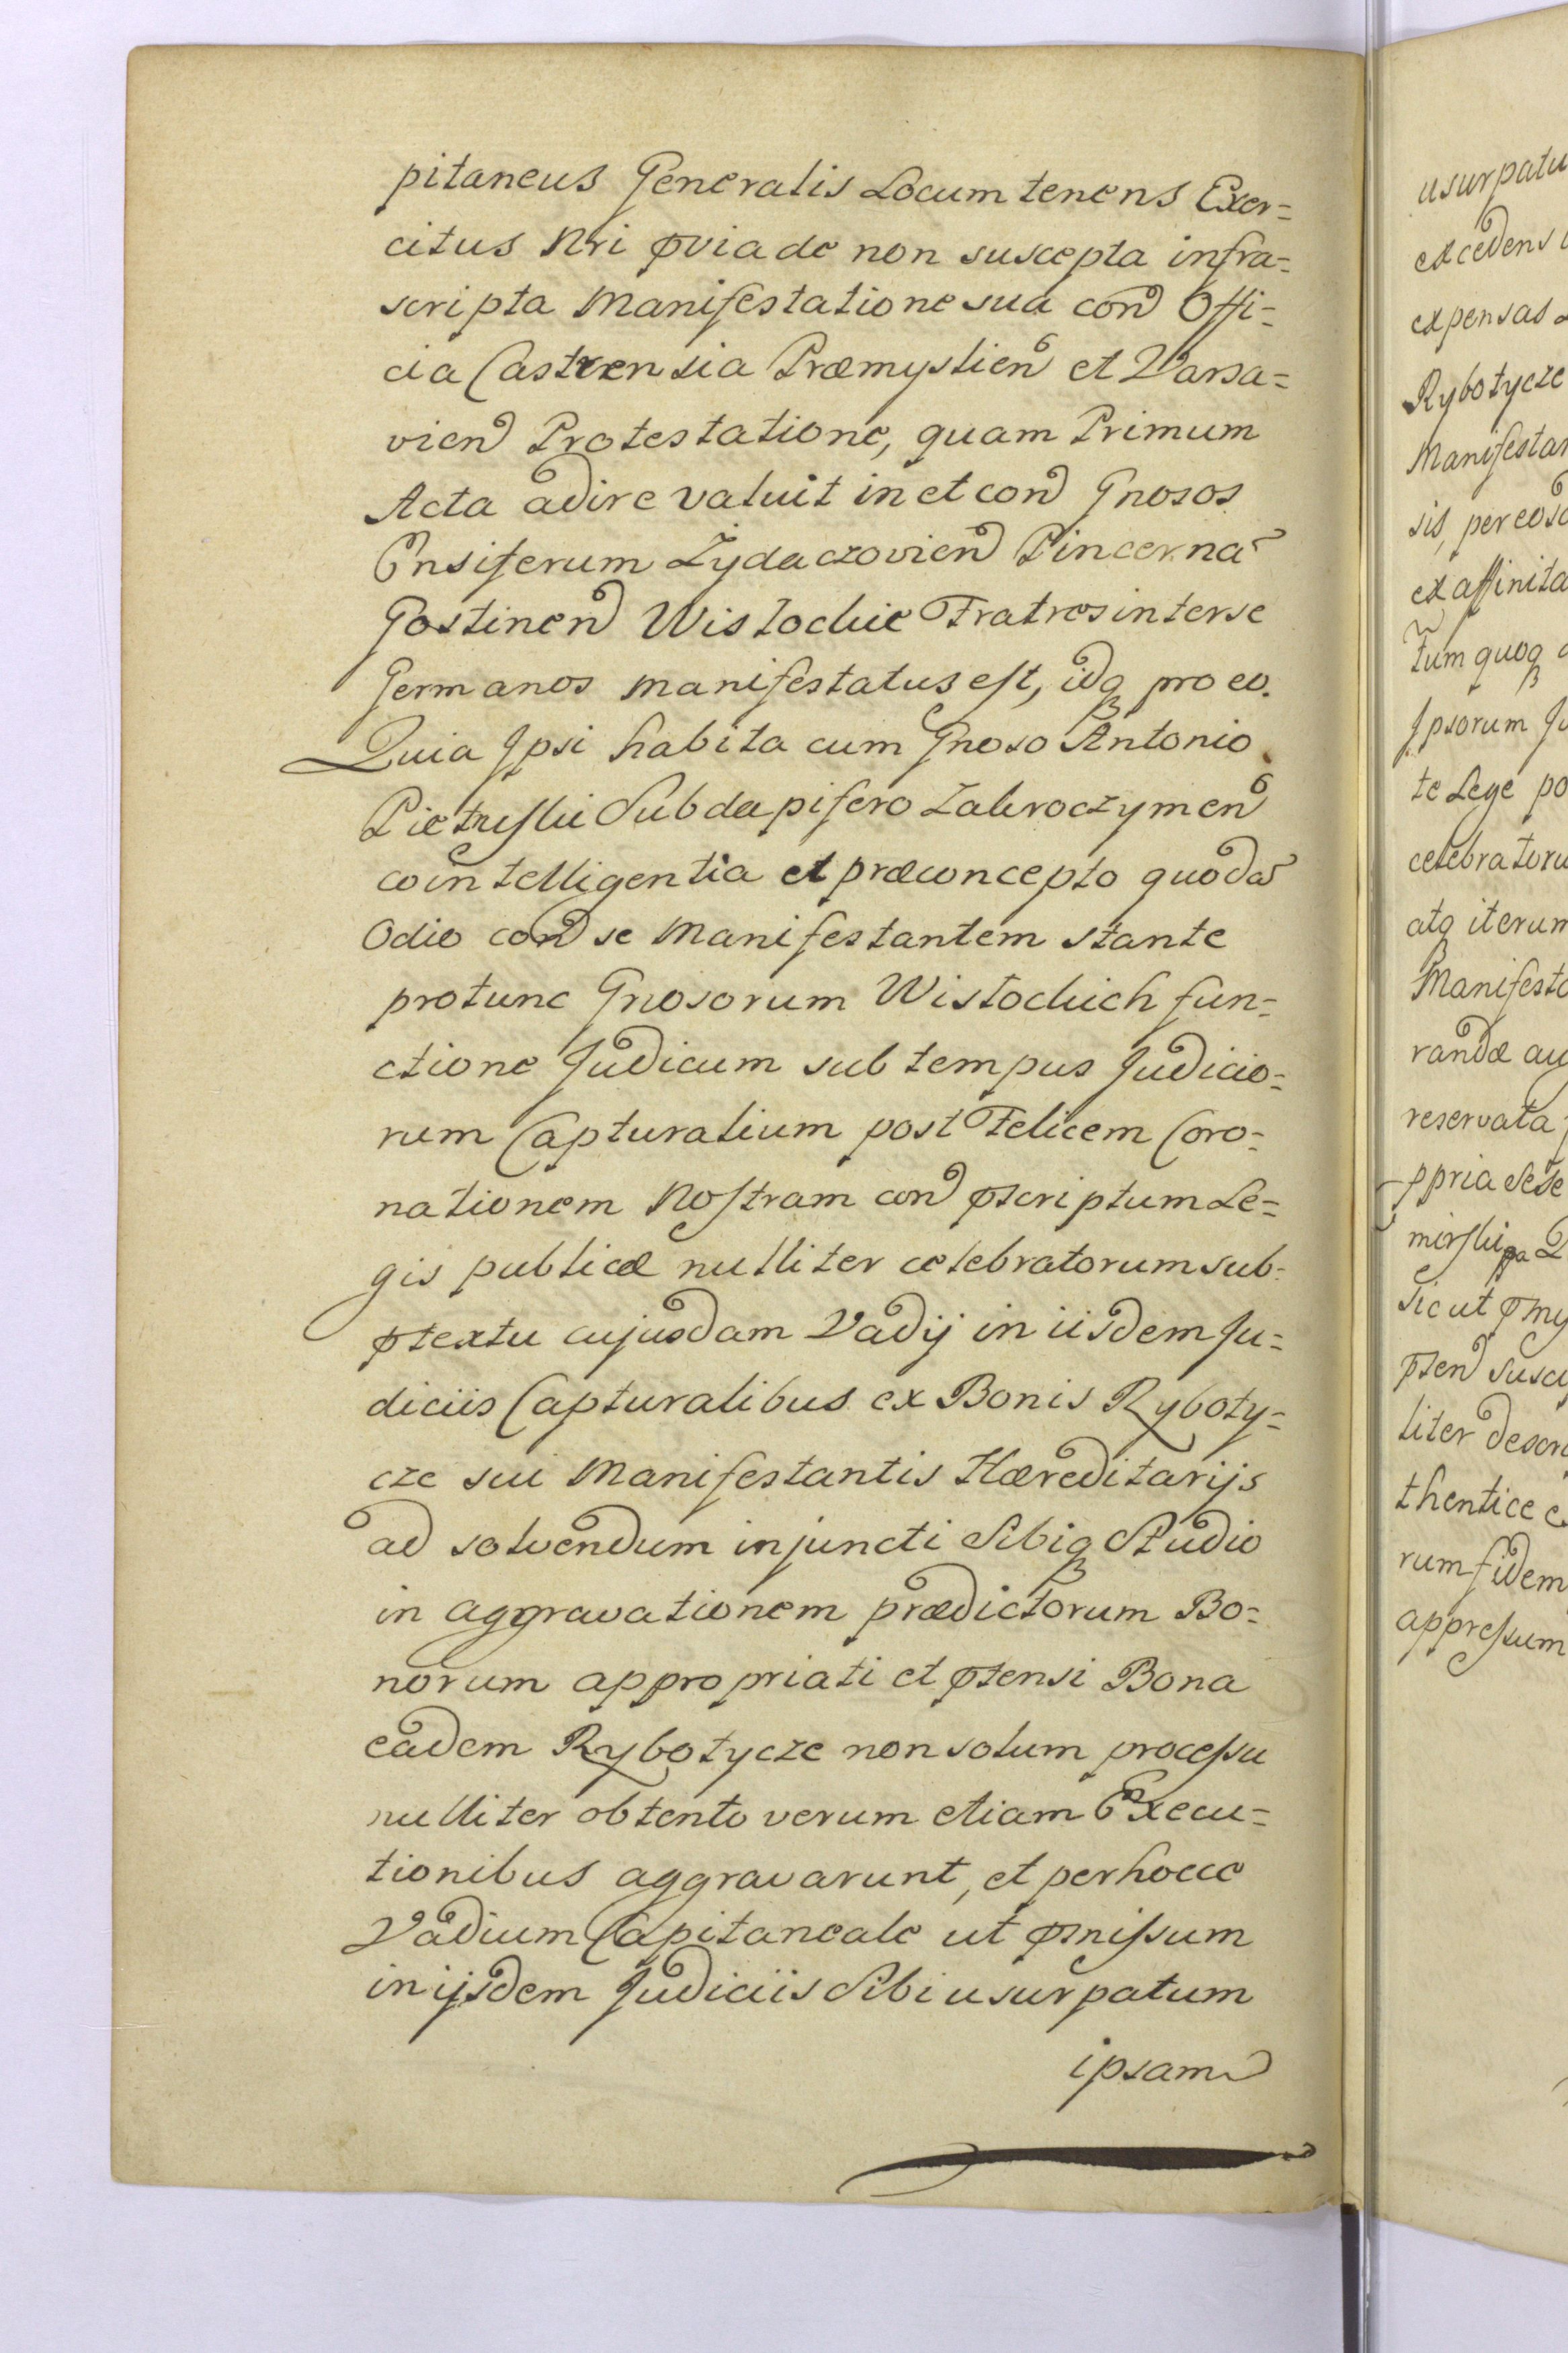 pitaneus Generalis Locum tenens Exer=
citus Nri pviade non suscepta infra=
scripta Manifestatione sua con Offi=
cia Castrensia Præmyslien et Varsa=
vien Protestatione, quam Primum
Acta adire valuit in et con Gnosos
Ensiferum Zydaczovien Pincerna
Gostinen Wisłockie Fratres inter se
Germanos manifestatus est, idq pro eo.
Quia Ipsi habita cum Gnoso Antonio
Pietruski Subdapifero Zakroczymen
cointelligentia et præconcepto quoda
Odio con se Manifestantem stante
protunc Gnosorum Wisłockich fun=
ctione Judicum sub tempus Judicio=
rum Capturalium post Felicem Coro=
nationem Nostram con pscriptum Le=
gis publicæ nulliter celebratorum sub
ptextu cujusdam Vadij in iisdem Ju=
diciis Capturalibus ex Bonis Ryboty=
cze sui Manifestantis Hæreditarijs
ad solvendum injuncti Sibiq Studio
in aggravationem prædictorum Bo=
norum appropriati et ptensi Bona
eadem Rybotycze non solum processu
nulliter obtento verum etiam Execu=
tionibus aggravarunt, et per hocce
Vadium Capitaneale ut pmissum
in ijsdem Judiciis Sibi usurpatum
ipsam
usurpatu
excedens
expensas
Rybotycze
Manifestan
sis, per eos
ex affinita
tum quoq
Ipsorum Ju
te Lege po
celebratoru
atq iterum
Manifesta
randæ au
reservata
ppria Sese
mirski
Sicut pmy
pten susce
liter descri
thentice e
rum fidem
appressum